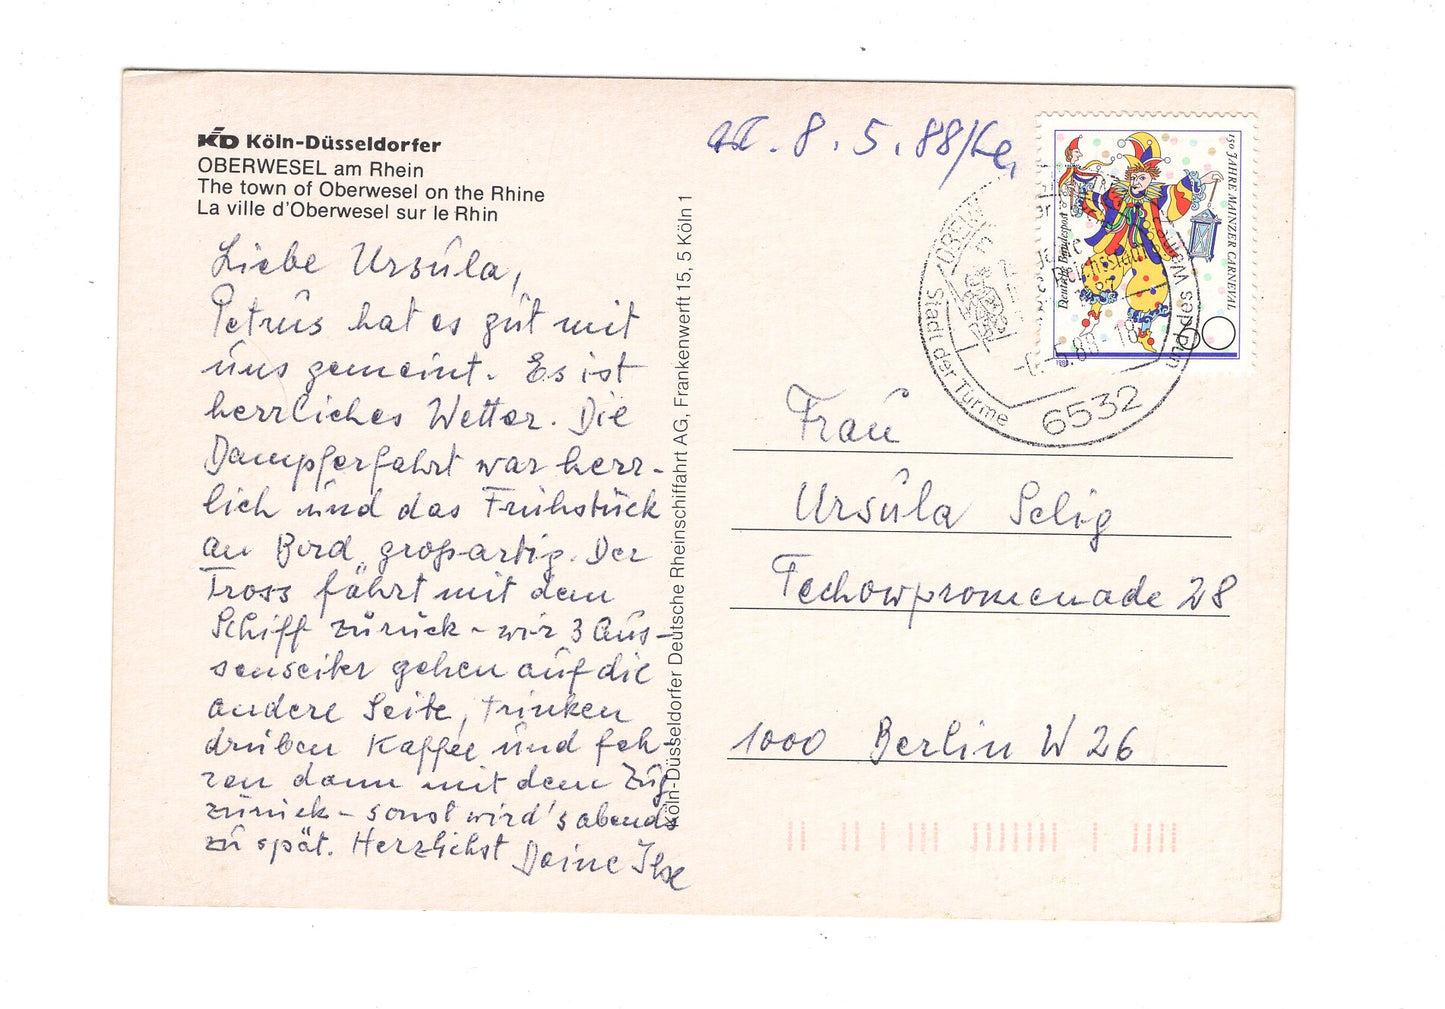 KD Köln-Düsseldorfer
OBERWESEL am Rhein
The town of Oberwesel on the Rhine
La ville d'Oberwesel sur le Rhin
Liebe Ursula,
Petrus hat es gut mit
uns gemeint. Es ist
herrliches Wetter. Die
Dampferfahrt war herr-
lich und das Frühstück
an Bord „großartig. Der
Tross fährt mit dem
Schiff zurück - wir 3 Aus-
senseiter gehen auf die
andere Seite, trinken
drüben Kaffee und fah-
ren dann mit dem Zug
zurück - sonst wird's abends
zu spät. Herzlichst Deine Ilse
Köln-Düsseldorfer Deutsche Rheinschiffahrt AG, Frankenwerft 15, 5 Köln 1
8.5.88/
150 JAHRE MAINZER CARNEVAL
Deutsche Bundespost
60
OBERW
Stadt der Türme
des Weines und
6532
Frau
Ursula Selig
Techowpromenade 28
1000 Berlin W 26